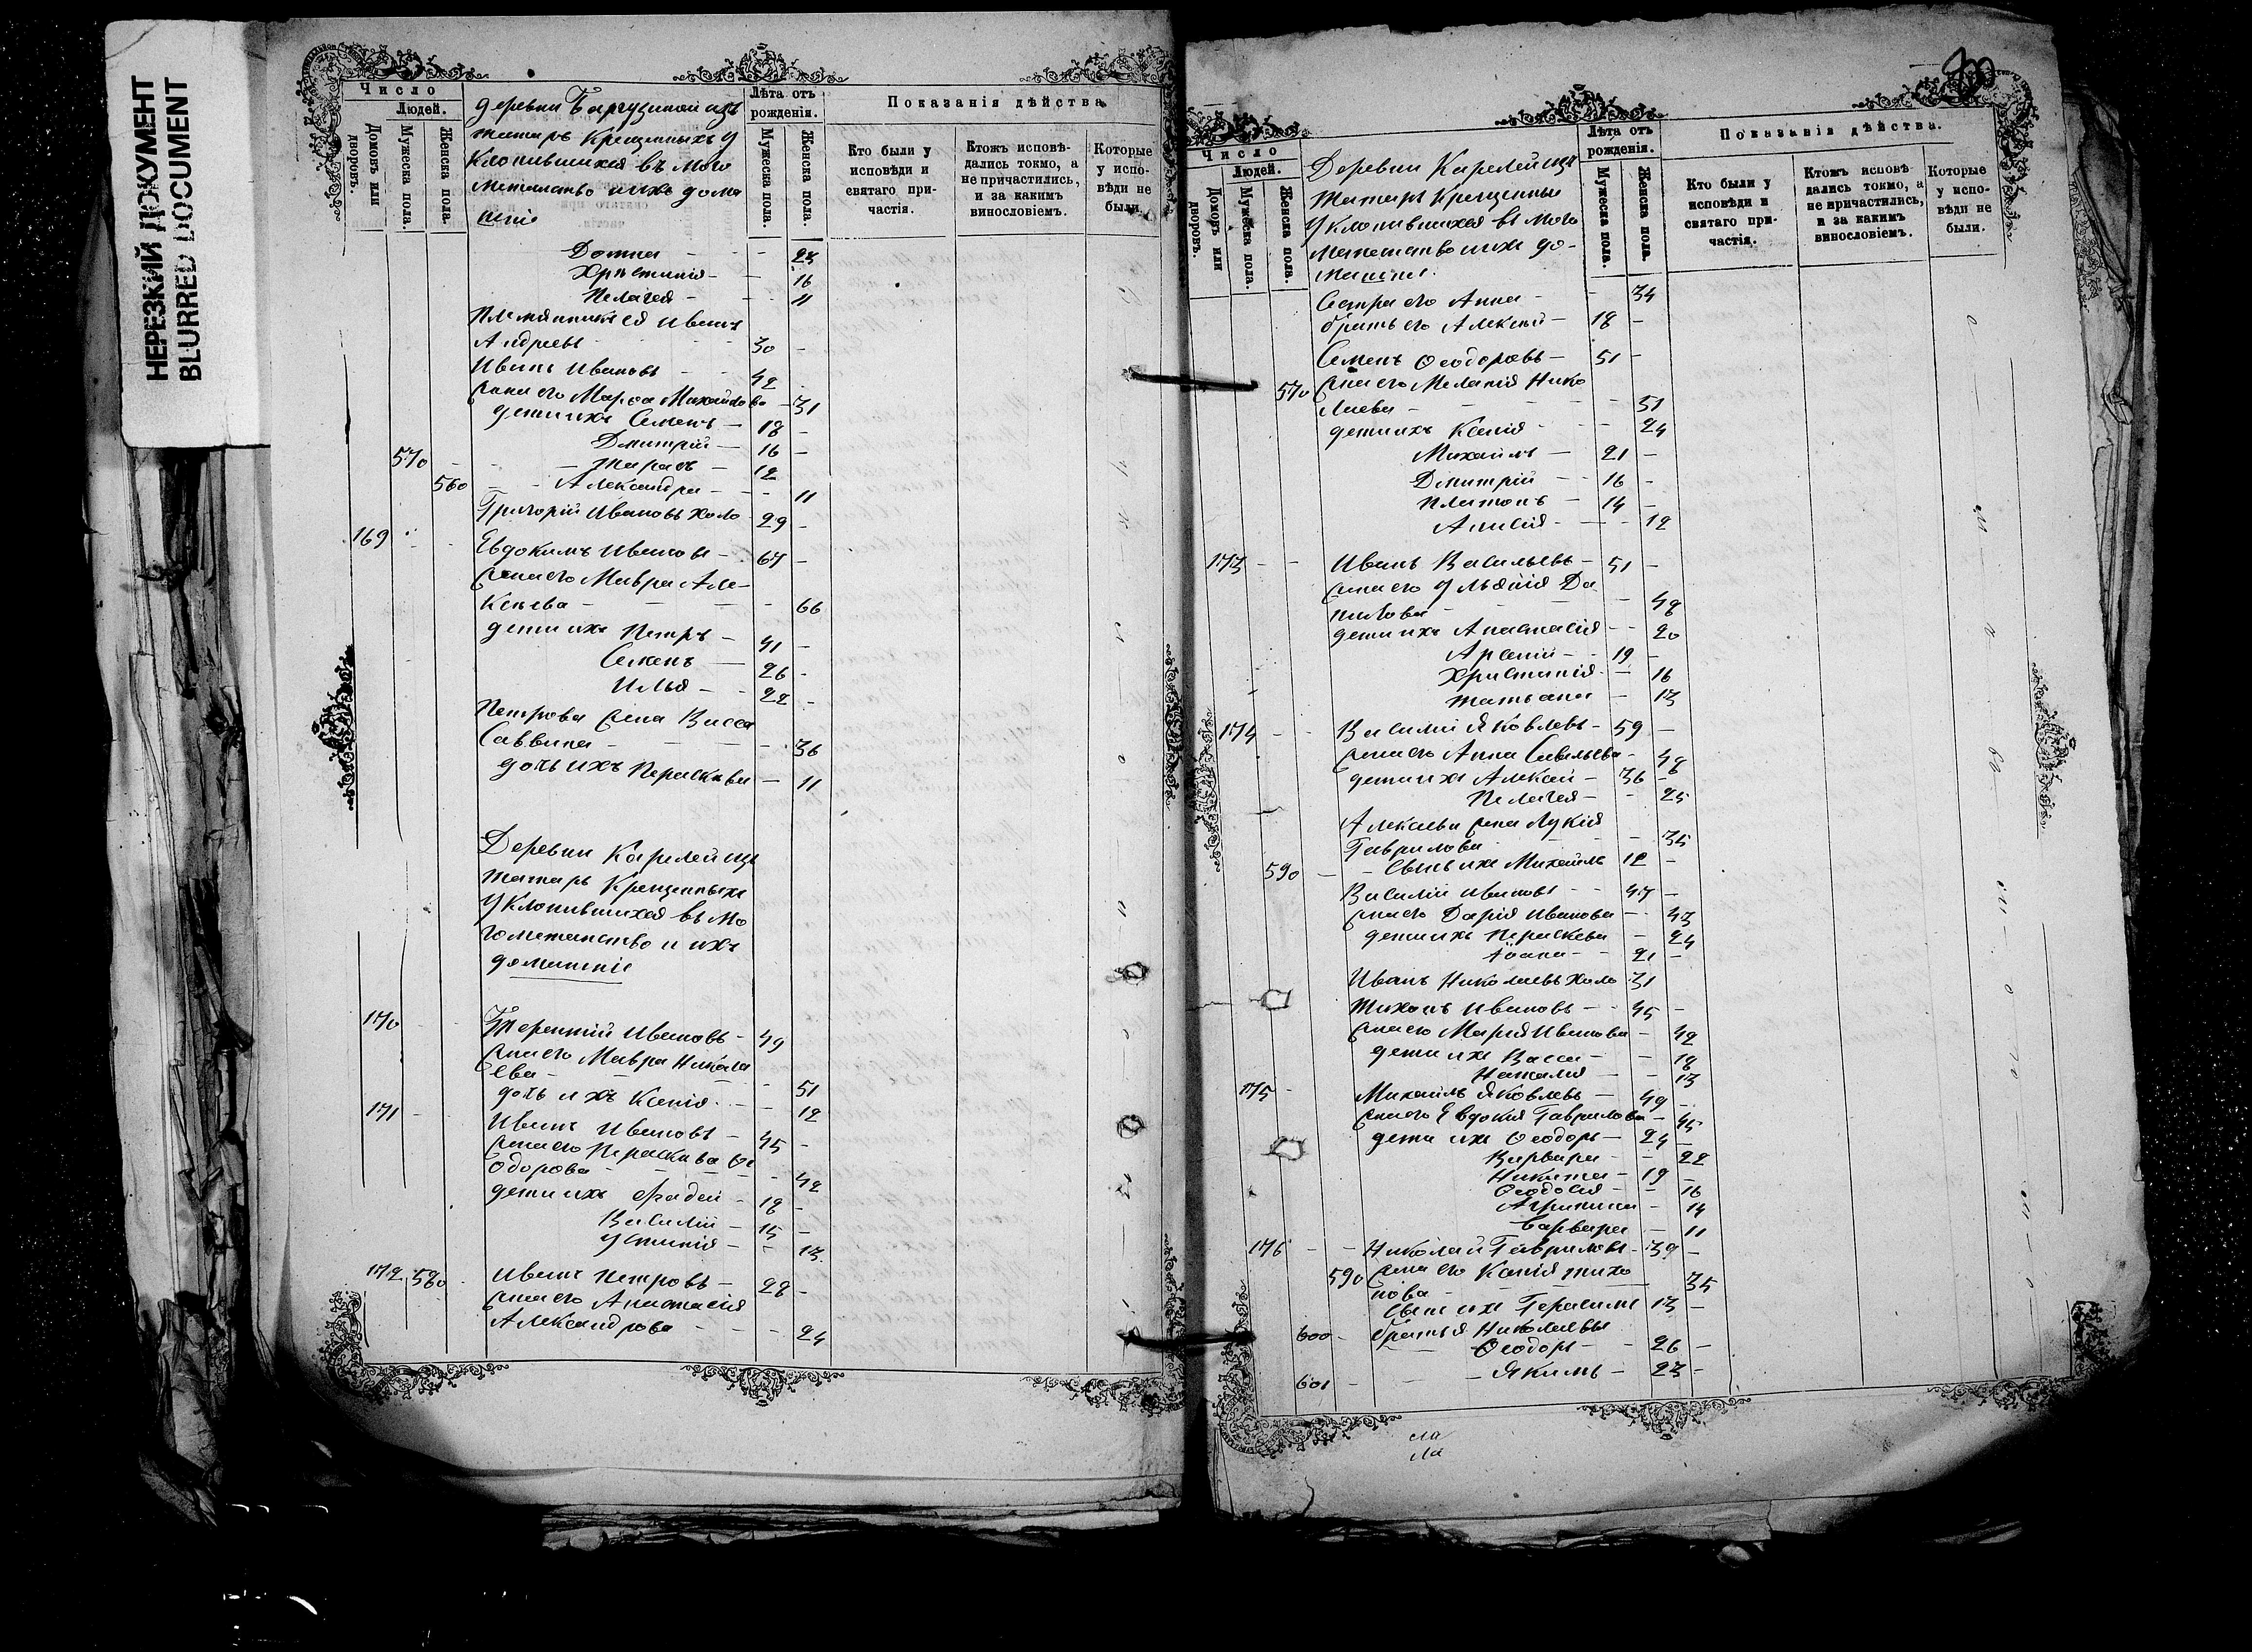 НЕРЕЗКИЙ ДОКУМЕНТ
BLURRED DOCUMENT
Число
Людей.
Домовъ или дворовъ.
Мужеска пола.
Женска пола.
деревни изъ
татаръ Крещеныхъ у
Клонившихся въ Мого
метанство и ихъ дома
шніе
Лѣта отъ рожденія.
Мужеска пола.
Женска пола.
Показанія дѣйства
Кто были у исповѣди и святаго причастія.
Ктожъ исповѣдались токмо, а не причастились, и за какимъ винословіемъ.
Которые у исповѣди не были.
Домна - - 23
Христинія - - 16
Пелагея - - 11
Племянникъ ея Иванъ
Андреевъ 30 -
Иванъ Ивановъ - 42 -
жена его Марѳа Михайлова - 31
дети ихъ Семенъ - 18 -
Дмитрій - 16 -
570 - Тарасъ - 12
560 - Александра - - 11
Григорій Ивановъ холо 29 -
169 Евдокимъ Ивановъ - 67 -
жена его Мавра Але-
ксеева - - - 66
дети ихъ Петръ - 41 -
Семенъ - 26 -
Илья - 22 -
Петрова жена Васса
Саввина - - - 36
дочь ихъ Параскева - 11
Деревни Карелей изъ
татаръ Крещенныхъ
уклонившихся въ Мо
гометанство и ихъ
домашніе
170 Терентій Ивановъ - 49
жена его Мавра Никола
ева - - - 51
дочь ихъ Ксенія - - 12
171 - Иванъ Ивановъ - 45 -
жена его Параскева Ѳе
одорова - - - 42
дети ихъ Фадей - 18 -
Василій - 15 -
Устинія - - 13
172 580 Иванъ Петровъ - 28 -
жена его Анастасія
Александрова - - - 24
Число
Людей.
Домовъ или дворовъ.
Мужеска пола.
Женска пола.
Деревни Карелей изъ
татаръ Крещенные
уклонившихся въ Мого
метанство и ихъ до-
машніе
Лѣта отъ рожденія.
Мужеска пола.
Женска пола.
Показанія дѣйства.
Кто были у исповѣди и святаго причастія.
Ктожъ исповѣдались токмо, а не причастились, и за какимъ винословіемъ.
Которые у исповѣди не были.
Сестра его Анна - - 34
братъ его Алексей - 18 -
Семенъ Ѳеодоровъ - 51 -
570 жена его Меланія Нико
лаева - - - 51
дети ихъ Ксенія - - 24
Михаилъ - 21 -
Дмитрій - 16 -
Платонъ - 14 -
Анисія - - 12
173 - - Иванъ Васильевъ - 51 -
жена его Ульянія Да
нилова - - 48
дети ихъ Анастасія - - 20
Арсеній - 19 -
Христинія - 16
татьяна - 13
174 - - Василій Яковлевъ - 59 -
жена его Анна Савельева - 48
дети ихъ Алексей - 36 -
Пелагея - - 25
Алексеева жена Лукія
Гаврилова - - 35
590 - - Сынъ ихъ Михаилъ 12 -
Василій Ивановъ - 47 -
жена его Дарія Иванова - 43
дети ихъ Параскева - 24
Іоанъ - 21 -
Иванъ Николаевъ холо 31
Тихонъ Ивановъ - 45 -
жена его Марія Иванова - 42
дети ихъ Васса - - 18
Наталія - - 13
175 - Михаилъ Яковлевъ - 49 -
жена его Евдокія Гаврилова - 45
дети ихъ Ѳеодоръ - 24 -
Варвара - - 22
Никита - 19 -
Ѳеодосія - - 16
Агрипина - 14
Варвара - 11
176 - - Николай Гавриловъ - 39 -
590 жена его Ксенія тихо
нова - - 35
Сынъ ихъ Герасимъ 13 -
600 - братья Николаевы
Ѳеодоръ - - 26 -
601 - - Якимъ - 23 -
ла
ла